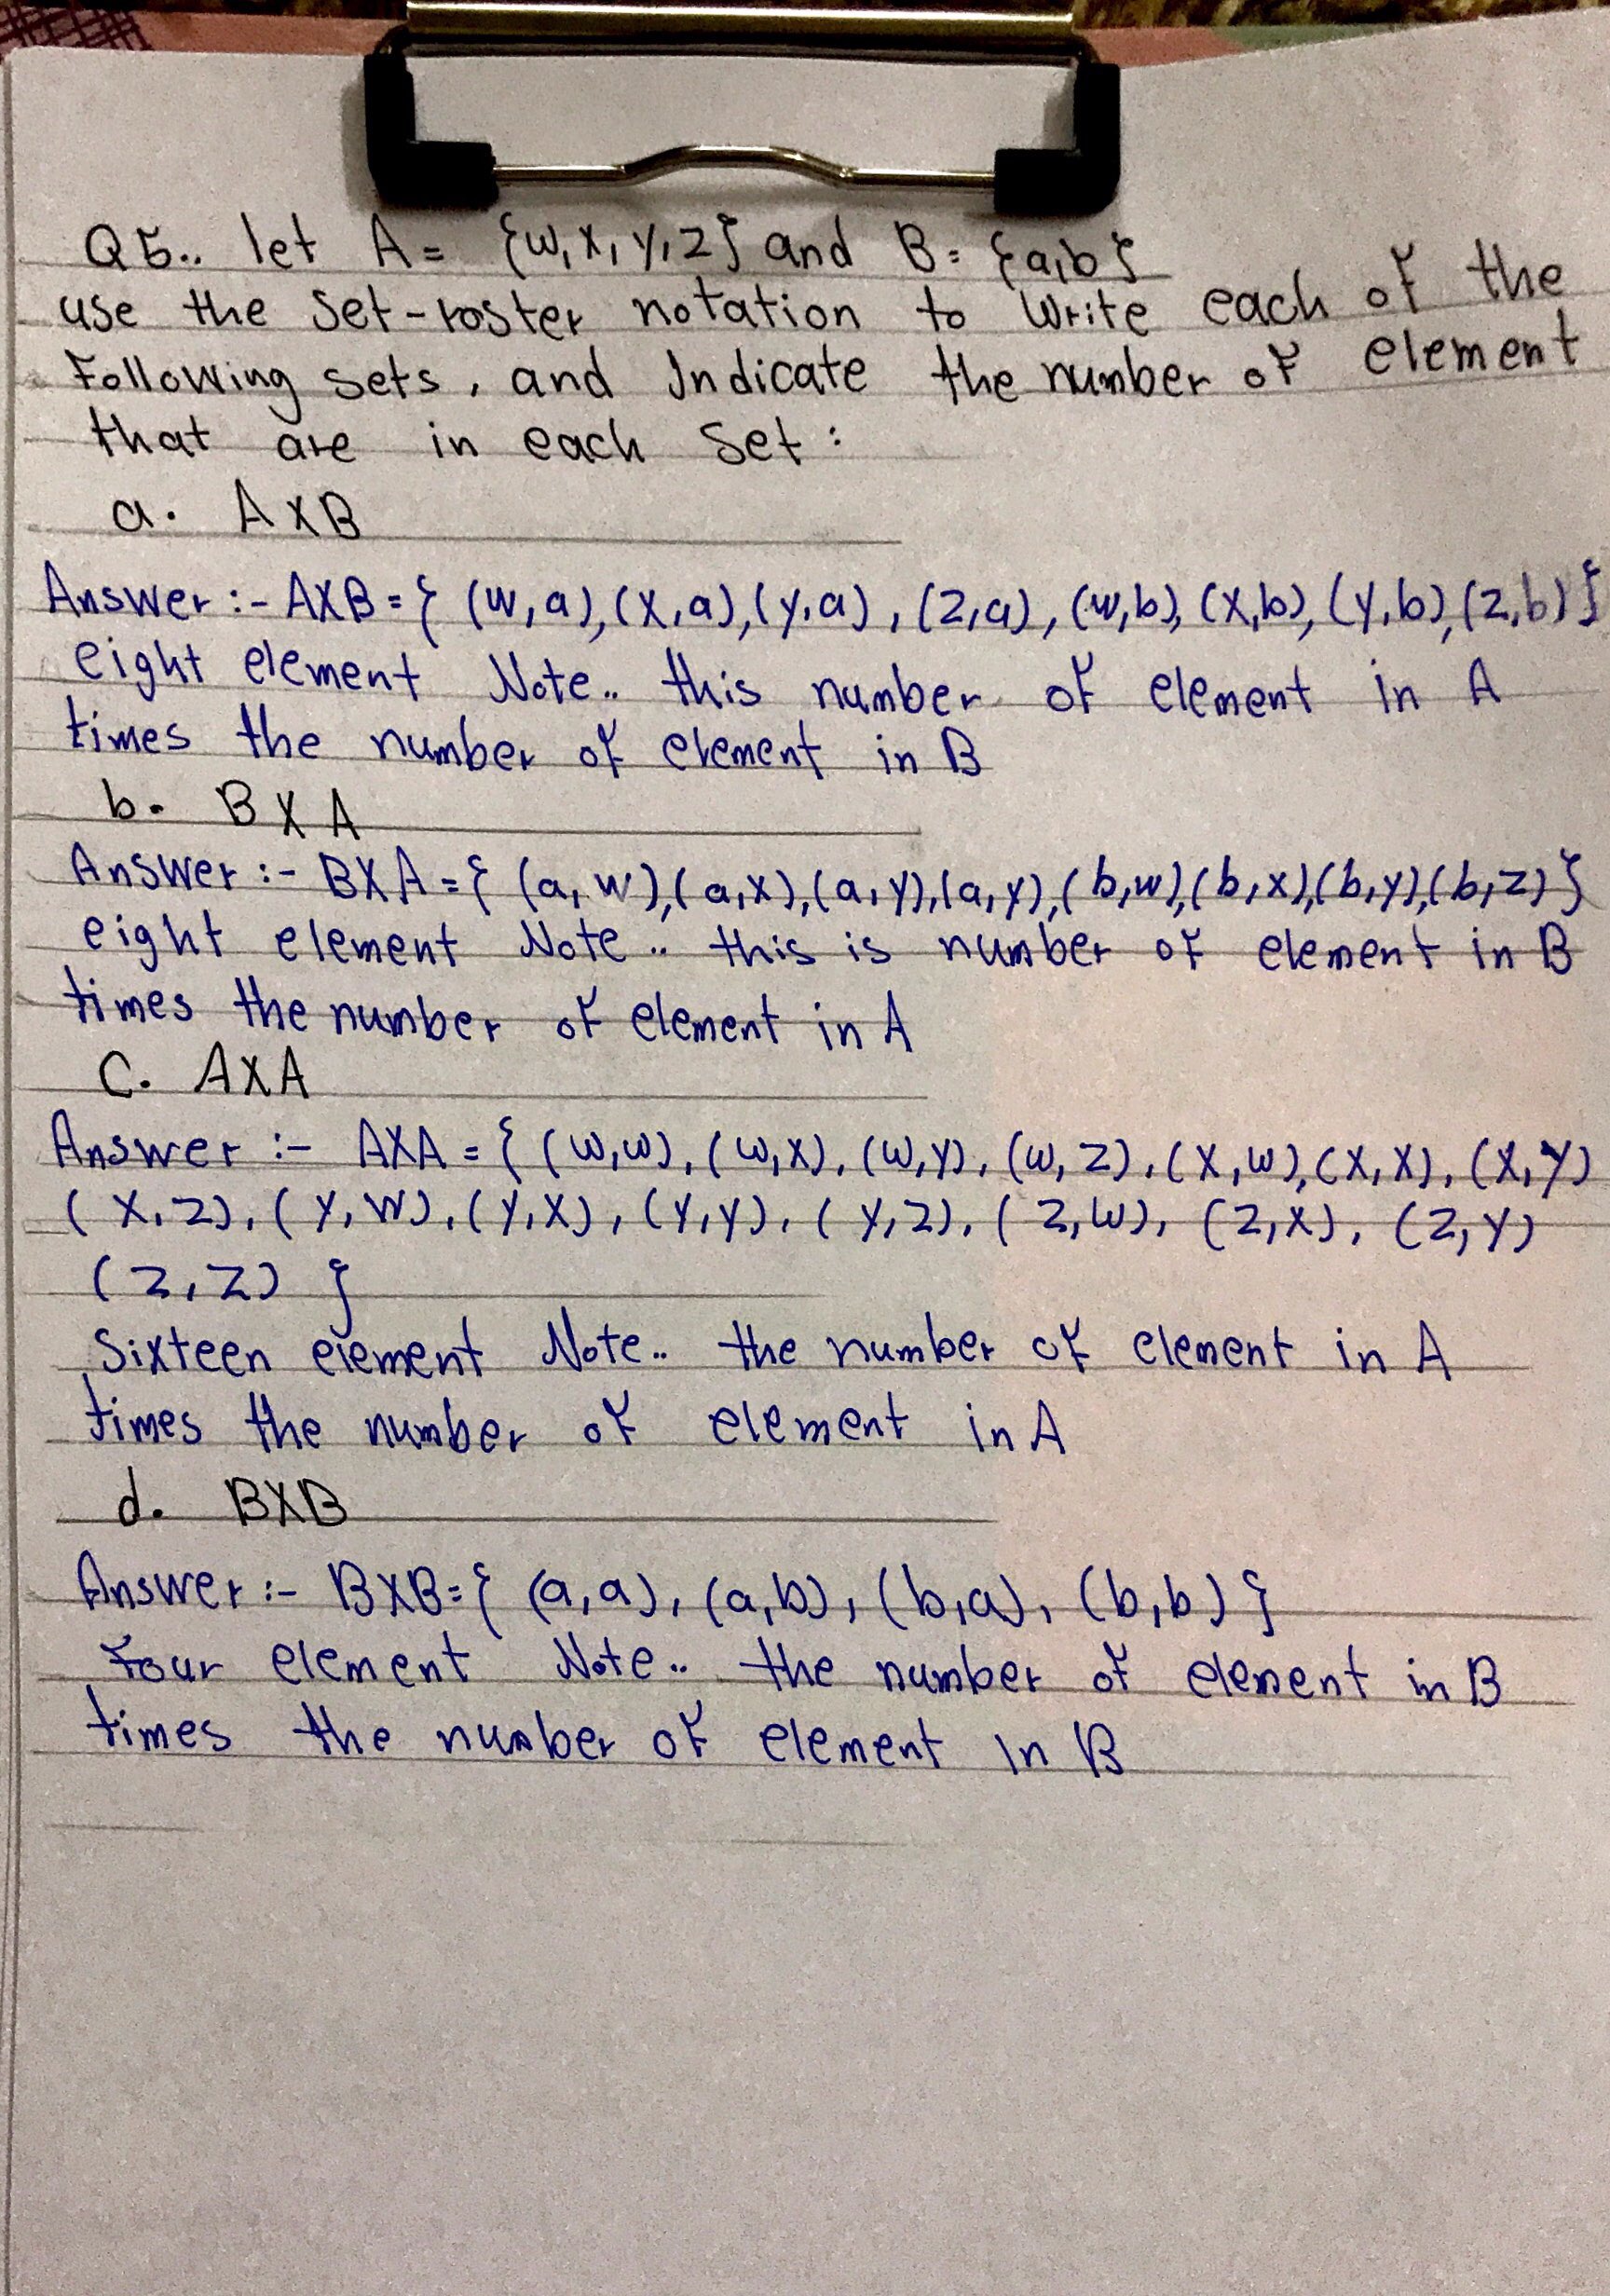 Q5.. let A = {w, x, y, z} and B = {a,b}
use the set-roster notation to write each of the
Following sets, and Indicate the number of element
that are in each set :
a. A X B
Answer :- AXB = { (w,a), (x,a), (y,a), (z,a), (w,b), (x,b), (y,b), (z,b) }
eight element Note.. this number of element in A
times the number of element in B
b. B X A
Answer :- BXA = { (a,w), (a,x), (a,y), (a,y), (b,w), (b,x), (b,y), (b,z) }
eight element Note.. this is number of element in B
times the number of element in A
C. AXA
Answer :- AXA = { (w,w), (w,x), (w,y), (w,z), (x,w), (x,x), (x,y)
(x,z), (y,w), (y,x), (y,y), (y,z), (z,w), (z,x), (z,y)
(z,z) }
Sixteen element Note.. the number of element in A
times the number of element in A
d. BXB
Answer :- BXB = { (a,a), (a,b), (b,a), (b,b) }
Four element Note.. the number of element in B
times the number of element in B